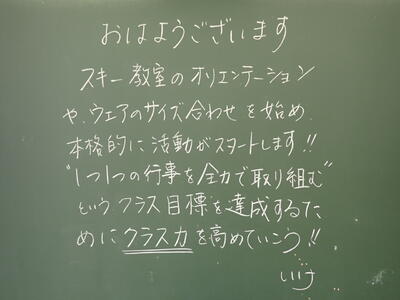 おはようございます
スキー教室のオリエンテーション
や、ウェアのサイズ合わせを始め、
本格的に活動がスタートします!!
"1つ1つの行事を全力で取り組む"
というクラス目標を達成するた
めにクラス力を高めていこう!!